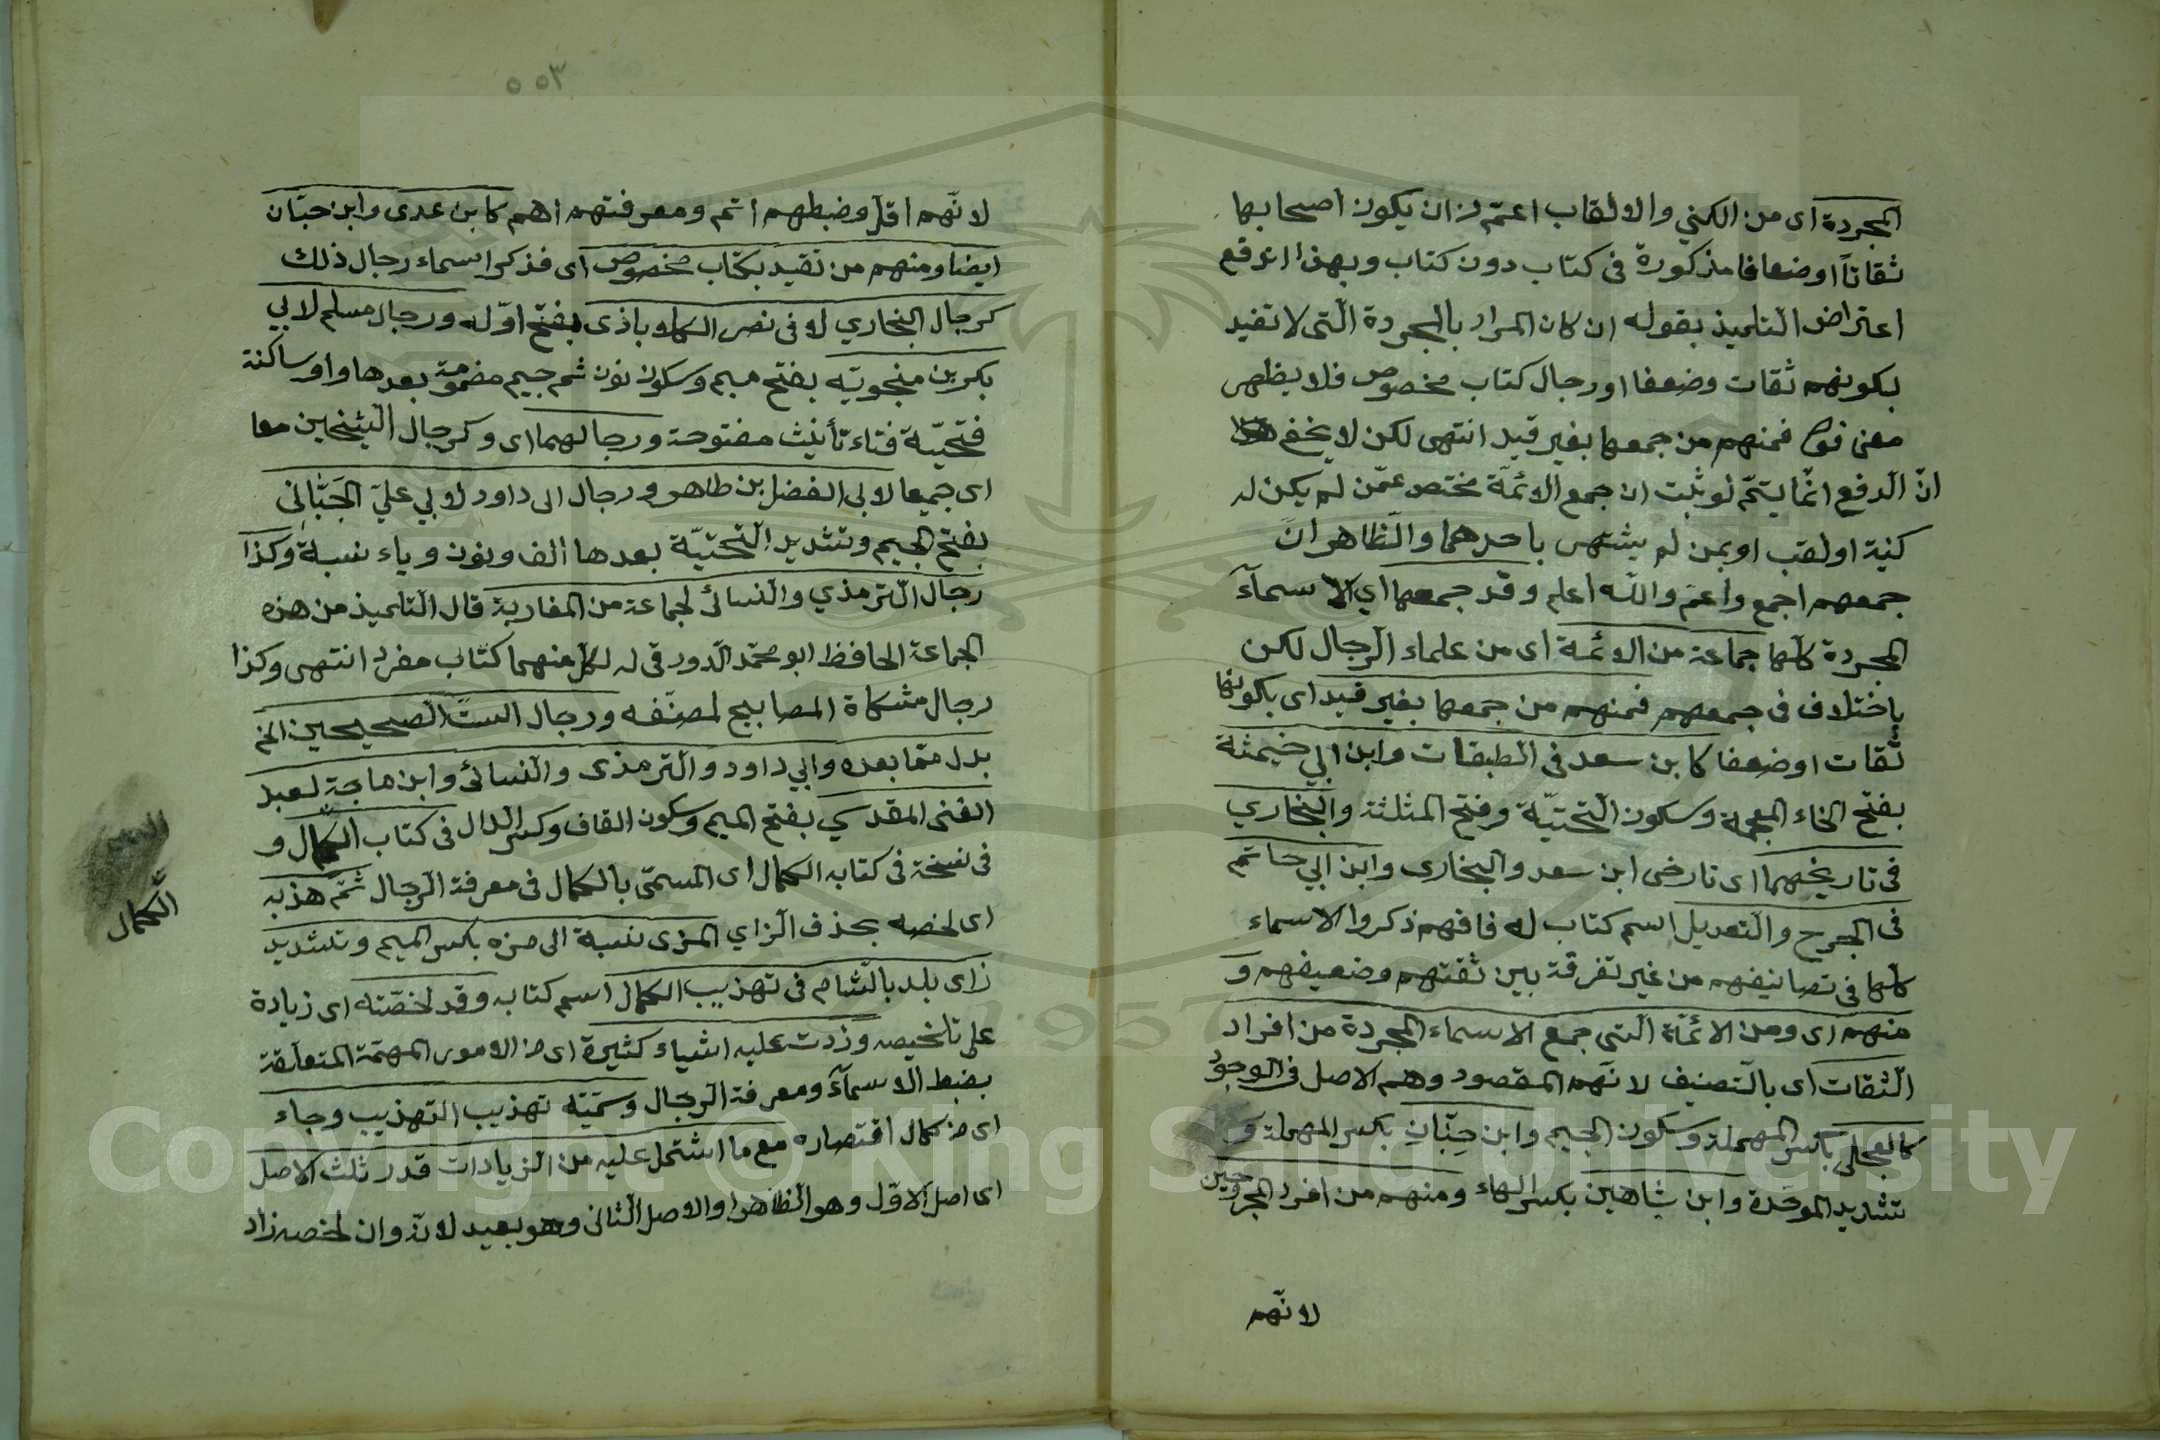 المجردة اى من الكني والالقاب اعمّ من ان يكون اصحابها
ثقاتاً او ضعافا مذكورة فى كتاب دون كتاب وبهذا اندفع
اعتراض التلميذ بقوله ان كان المراد بالمجردة الّتى لا تقيد
بكونهم ثقات وضعفا او رجال كتاب مخصوص فلا يظهر
معنى فمنهم من جمعها بغير قيد انتهى لكن لا يخفى
انّ الدفع انّما يتمّ لو ثبت ان جمع الائمّة مختص عمّن لم يكن له
كنية او لقب او بمن لم يشتهر باحدهما والظاهر انّ
جمعهم اجمع واعم والله اعلم وقد جمعها اي الاسمآء
المجردة كلّها جماعة من الائمة اى من علماء الرجال لكن
باختلاف فى جمعهم فمنهم من جمعها بغير قيد اى بكونها
ثقات او ضعفا كابن سعد فى الطبقات وابن ابي خيثمة
بفتح الخاء المعجمة وسكون التحتيّة وفتح المثلثة والبخاري
فى تاريخهما اى تارخى ابن سعد والبخارى وابن ابي حاتم
فى الجرح والتعديل اسم كتاب له فافهم ذكروا الاسماء
كلّها فى تصانيفهم من غير تفرقة بين ثقتهم وضعيفهم و
منهم اى ومن الائمّة الّتى جمع الاسماء المجردة من افراد
الثقات اى بالتصنيف لانّهم المقصود وهم الاصل فى الوجود
كالعجلى بكسر المهملة وسكون الجيم وابن حِبّانِ بكسر المهملة و
تشديد الموحّدة وابن شاهين بكسر الهاء ومنهم من افرد المجروحين
لانّهم
٥٥٣
لانّهم اقل وضبطهم اتم ومعرفتهم اهم كابن عدى وابن حبّان
ايضا ومنهم من تقيد بكتاب مخصوص اى فذكر اسماء رجال ذلك
كرجال البخاري لابى نصر الكلاباذى بفتح اوّله ورجال مسلم لابي
بكر بن منجويّه بفتح ميم وسكون نون ثم جيم مضمومة بعدها واو ساكنة
فتحيّة فتاء تأنيث مفتوحة ورجالهما اى وكرجال الشيخين معا
اى جميعا لابى الفضل بن طاهر ورجال ابى داود لابي عليّ الجَيّانِى
بفتح الجيم وتشديد التحتيّة بعدها الف ونون وياء نسبة وكذا
رجال الترمذي والنسائى لجماعة من المغاربة قال التلميذ من هذه
الجماعة الحافظ ابو محمّد الدورقى له لكل منهما كتاب مفرد انتهى وكذا
رجال مشكاة المصابيح لمصنّفه ورجال الستّة الصحيحين الخ
بدل ممّا بعده وابي داود والترمذى والنسائى وابن ماجة لعبد
الغنى المقدسي بفتح الميم وسكون القاف وكسر الدال فى كتاب الكمال و
فى نسخة فى كتابه الكمال اى المسمّى بالكمال فى معرفة الرجال ثمّ هذّبه
اى لخصه بحذف الزاي المزى نسبة الى مزه بكسر الميم وتشديد
زاى بلد بالشام فى تهذيب الكمال اسم كتابه وقد لخصّته اى زيادة
على تلخيصه وزدت عليه اشياء كثيرة اى من الامور المهمّة المتعلّقة
بضبط الاسمآء ومعرفة الرجال وسمّيته تهذيب التهذيب وجاء
اى من كمال اقتصاره مع ما اشتمل عليه من الزيادات قدر ثلث الاصل
اى اصل الاوّل وهو الظاهر او الاصل الثانى وهو بعيد لانّه وان لخصه زاد
الكمال
Copyright © King Saud University
1957